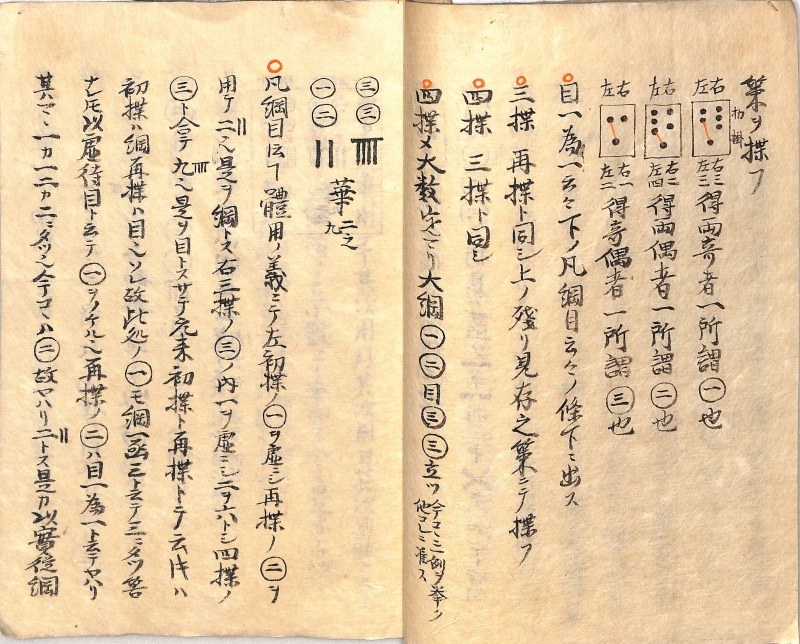 策ヲ揲フ
扐掛
左右 左三右三 得両奇者一所謂㊀也
左右 左四右二 得両偶者一所謂㊁也
左右 左二右一 得奇偶者一所謂㊂也
目一為一云々下ノ凡綱目云々ノ條下ニ出ス
三揲 再揲ト同シ上ノ残リ見存之策ニテ揲フ
四揲 三揲ト同シ
四揲〆大数定マリ大綱㊀㊁目㊂㊂立ツ
今コヽニ一例ヲ挙ク
他コレニ准ス
㊂㊂
㊀㊁
華 二之九
凡綱目伝ハ體用ノ義ニテ左初揲ノ㊀ヲ虚シ再揲ノ㊁ヲ
用テ二也是ヲ綱トス右三揲ノ㊂ノ内一ヲ虚ニシ二ヲ六トシ四揲ノ
㊂ト合テ九也是ヲ目トスサテ元来初揲ト再揲トテ云トキハ
初揲ハ綱再揲ハ目也ソレ故此処ノ㊀モ綱一函三ト云テ三ニタツ
ナレ𪜈以虚待目ト云テ㊀ヲノケル也再揲ノ㊁ハ目一為一ト云テヤハリ
一カ一二カ二ニタツ也今コヽハ㊁故ヤハリ二トス是カ以實從綱